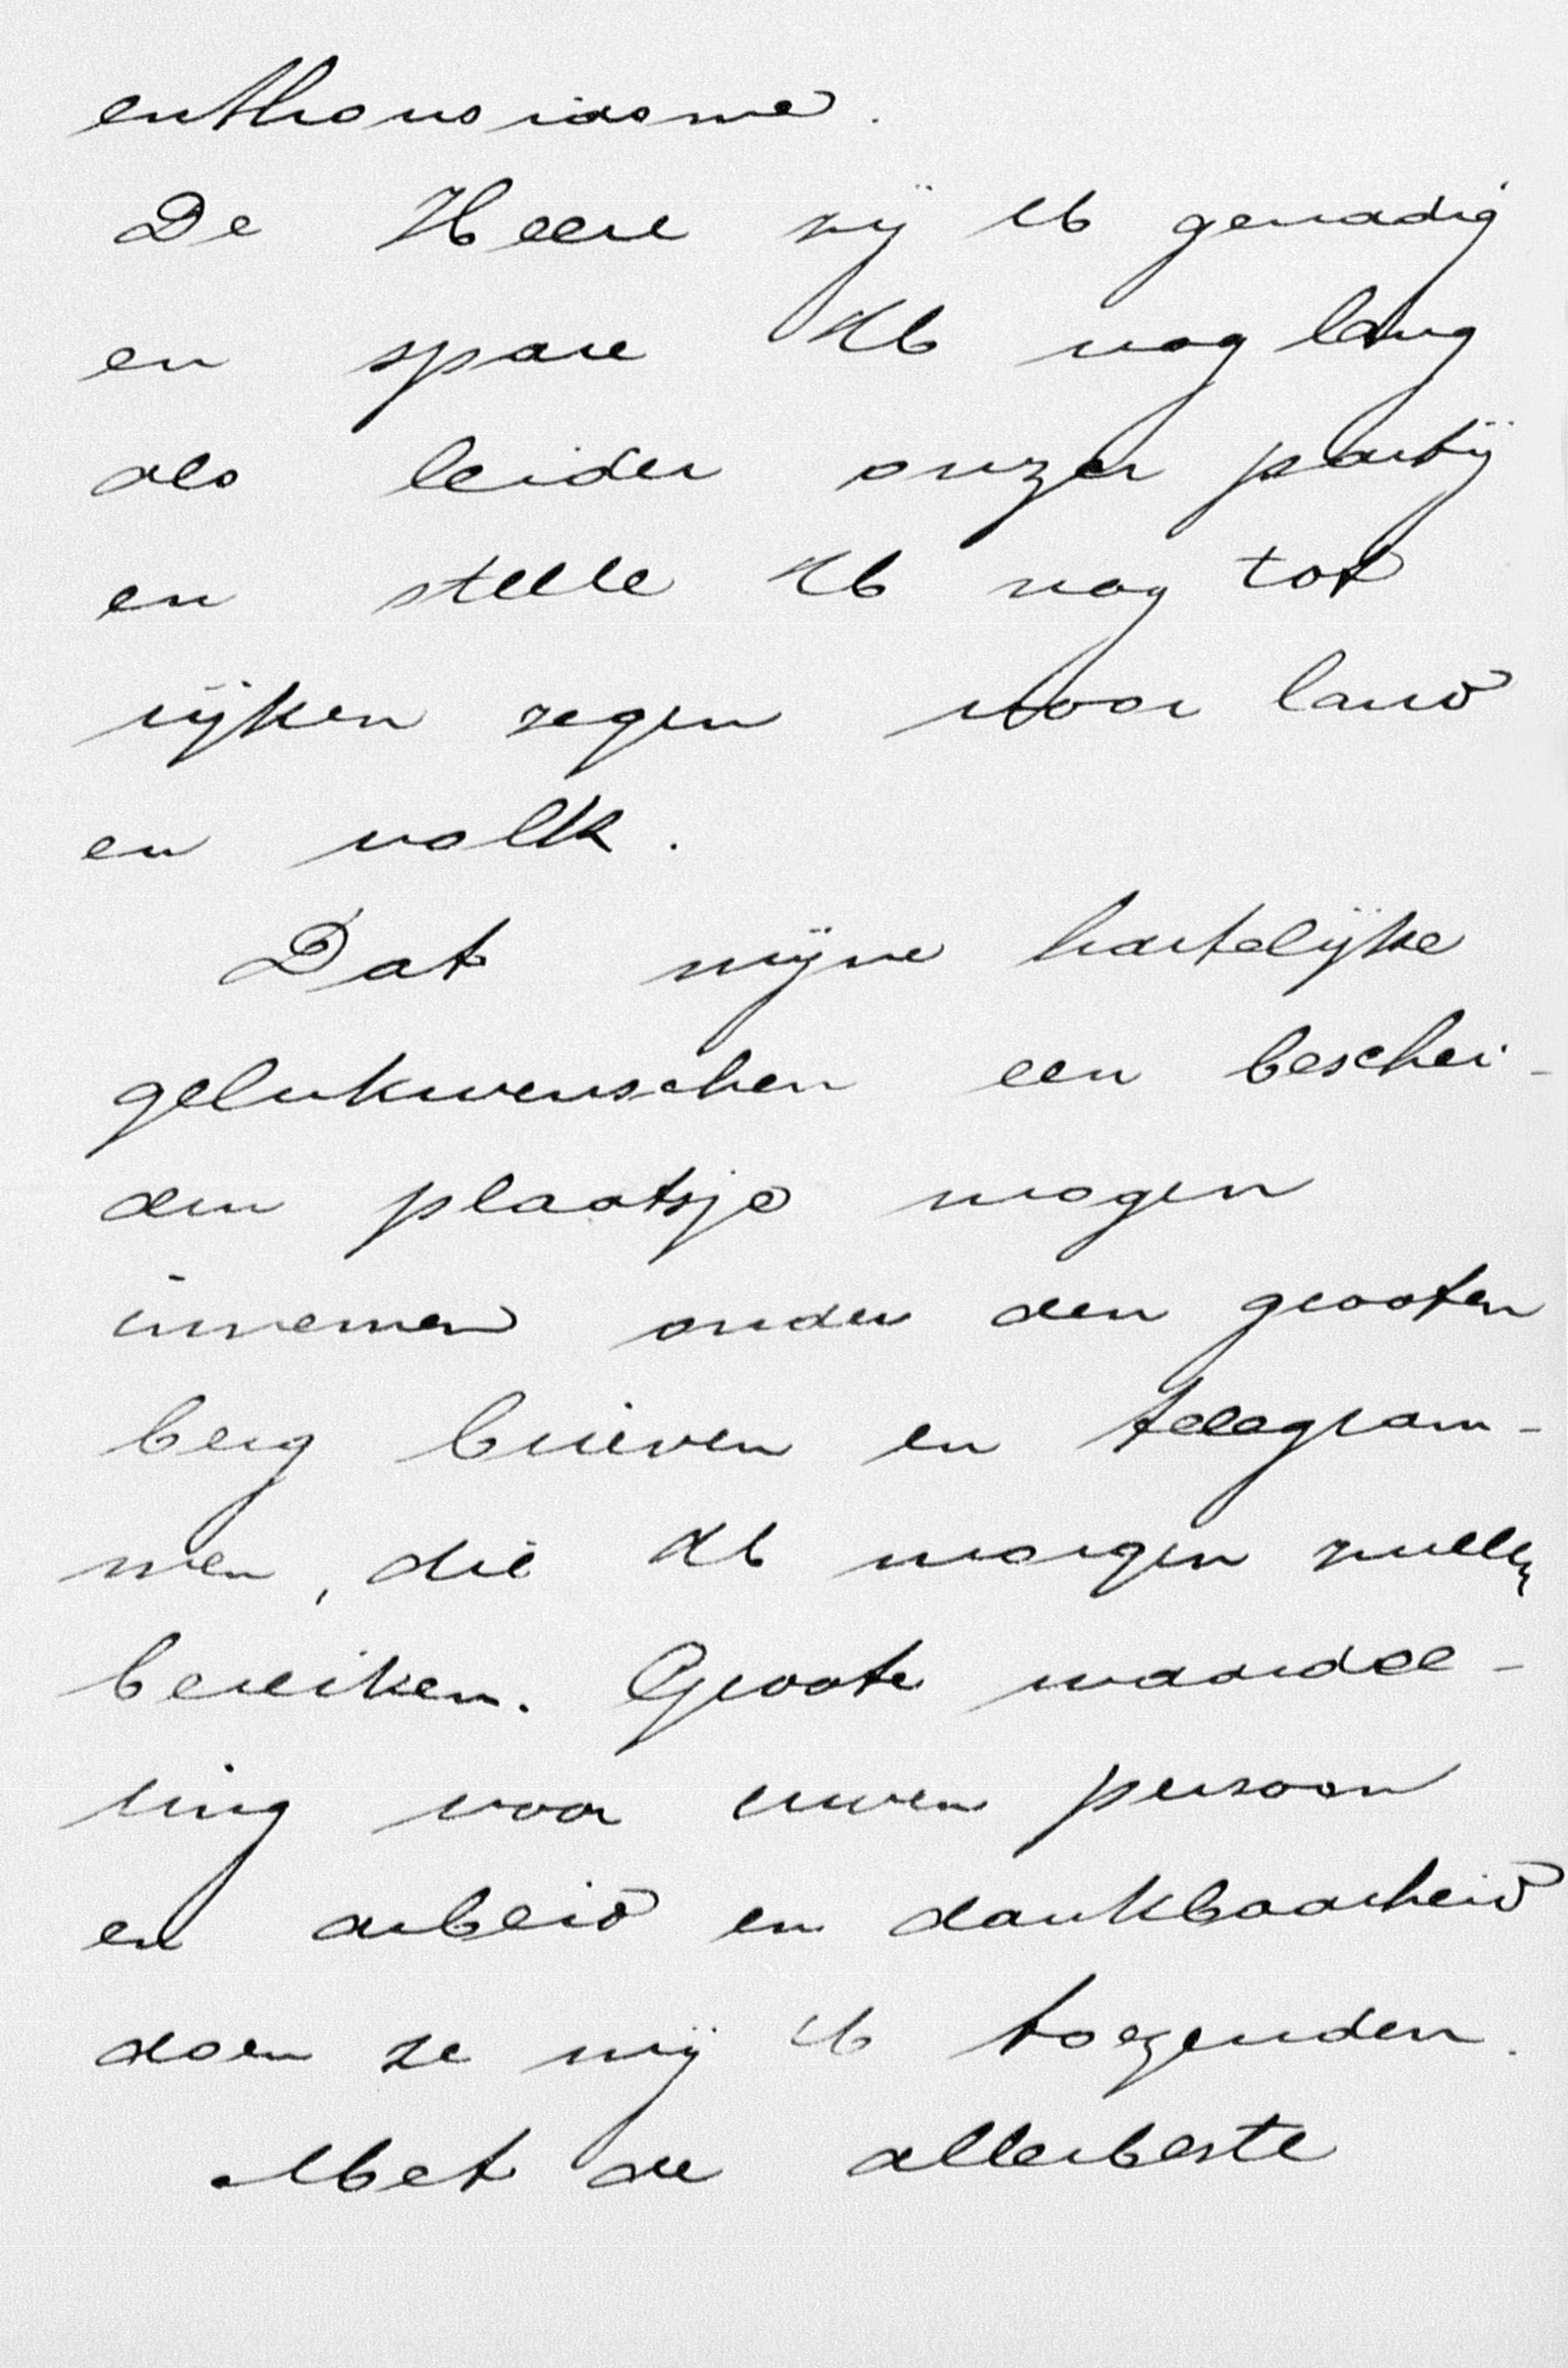 enthousiasme.
De Heere zij U genadig
en spare U nog lang
als leider onzer partij
en stelle U nog tot
rijken zegen voor land
en volk.
Dat mijne hartelijke
gelukwenschen een beschei-
den plaatsje mogen
innemen onder den grooten
berg brieven en telegram-
men, die U morgen zullen
bereiken. Groote waardee-
ring voor uwen persoon
en arbeid en dankbaarheid
doen ze mij U toezenden.
Met de allerbeste